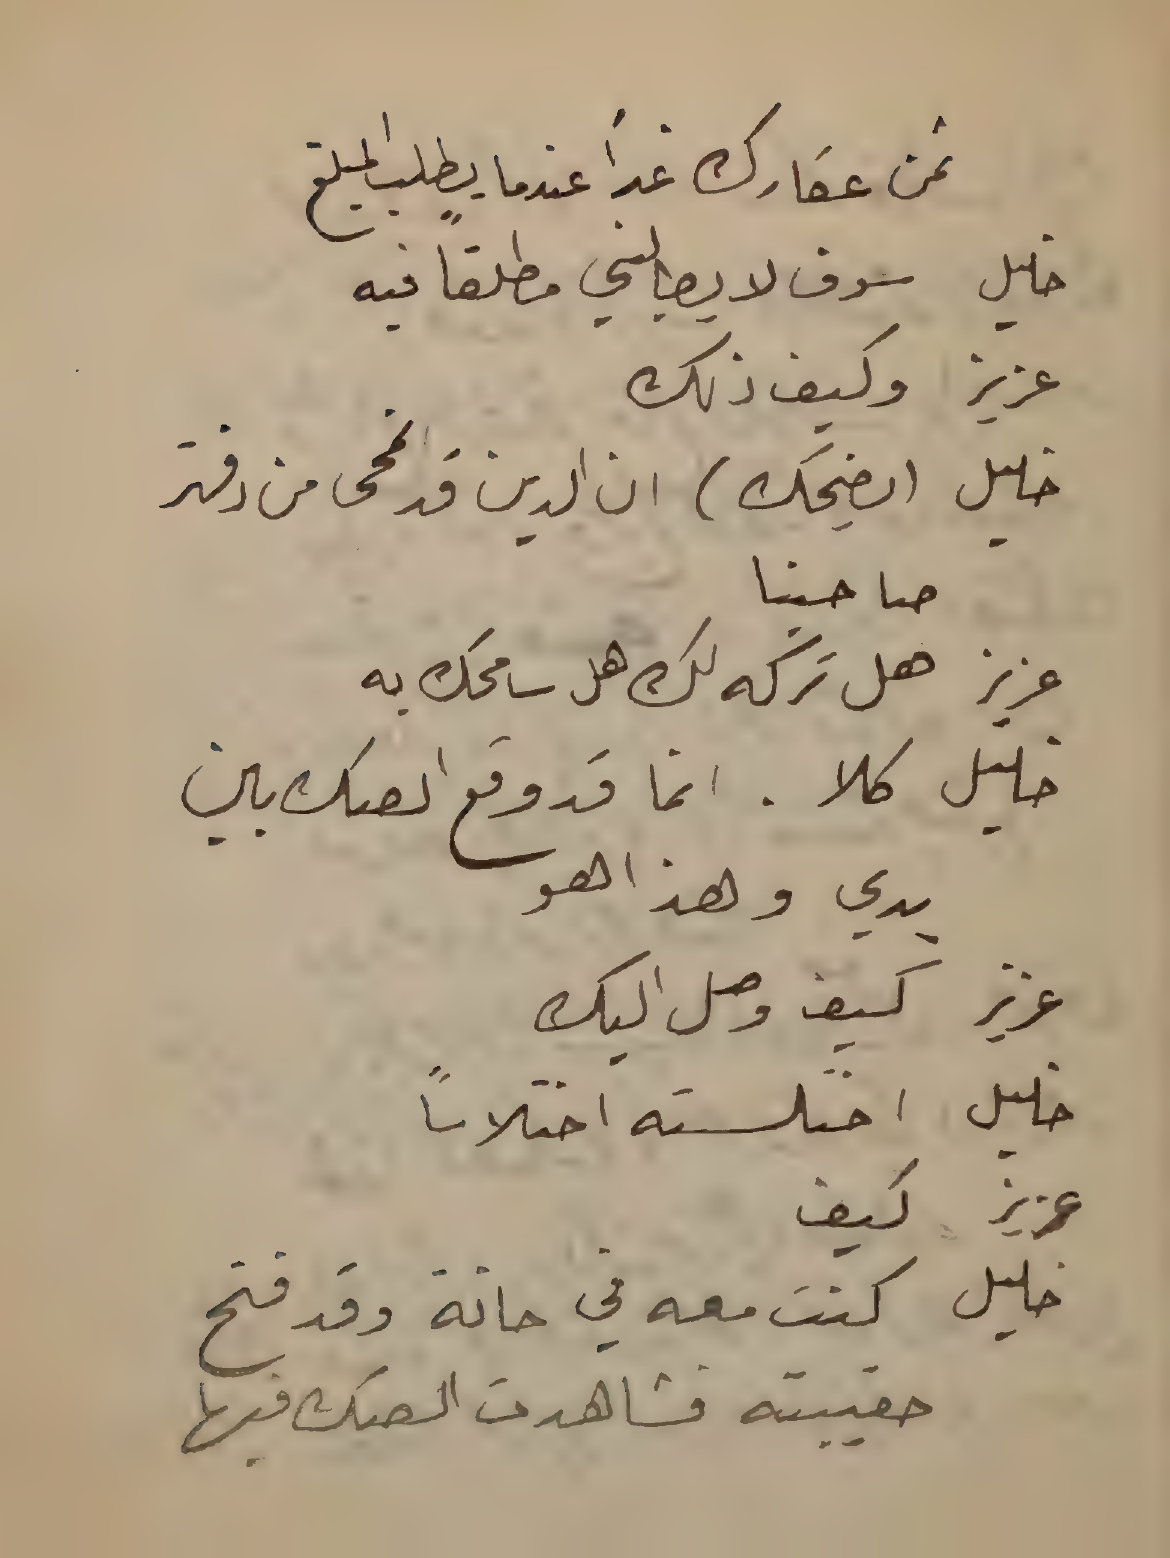 ثمن عقارك غداً عندما يطلب المبلغ
خليل سوف لا يطالبني مطلقاً فيه
عزيز وكيف ذلك
خليل (يضحك) ان الدين قد انمحى من دفتر
صاحبنا
عزيز هل تركه لك هل سامحك به
خليل كلا . انما قد وقع الصك بين
يدي وهذا هو
عزيز كيف وصل اليك
خليل اختلسته اختلاساً
عزيز كيف
خليل كنت معه في حانة وقد فتح
حقيبته فشاهدت الصك فيها